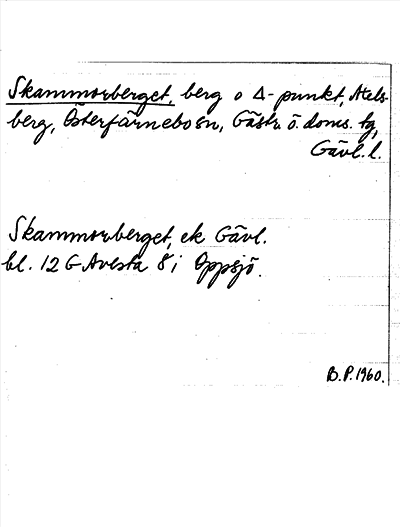 Skammorberget, berg o Δ-punkt, Atels-
berg, Österfärnebo sn, Gästr. ö. doms. tg,
Gävl. l.
Skammorberget, ek Gävl.
bl. 12 G Avesta 8 i Oppsjö.
B.P. 1960.